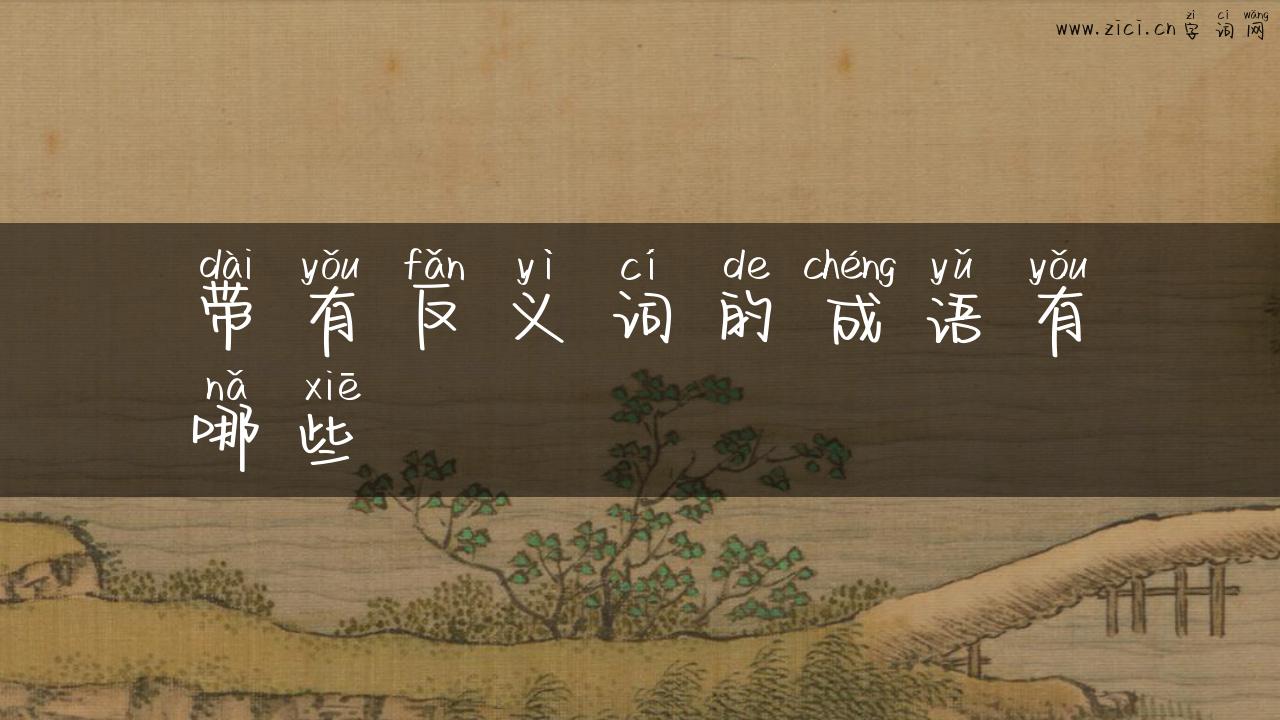 zì cí wǎng
www.zici.cn 字 词 网
dài yǒu fǎn yì cí de chéng yǔ yǒu
带 有 反 义 词 的 成 语 有
nǎ xiē
哪 些